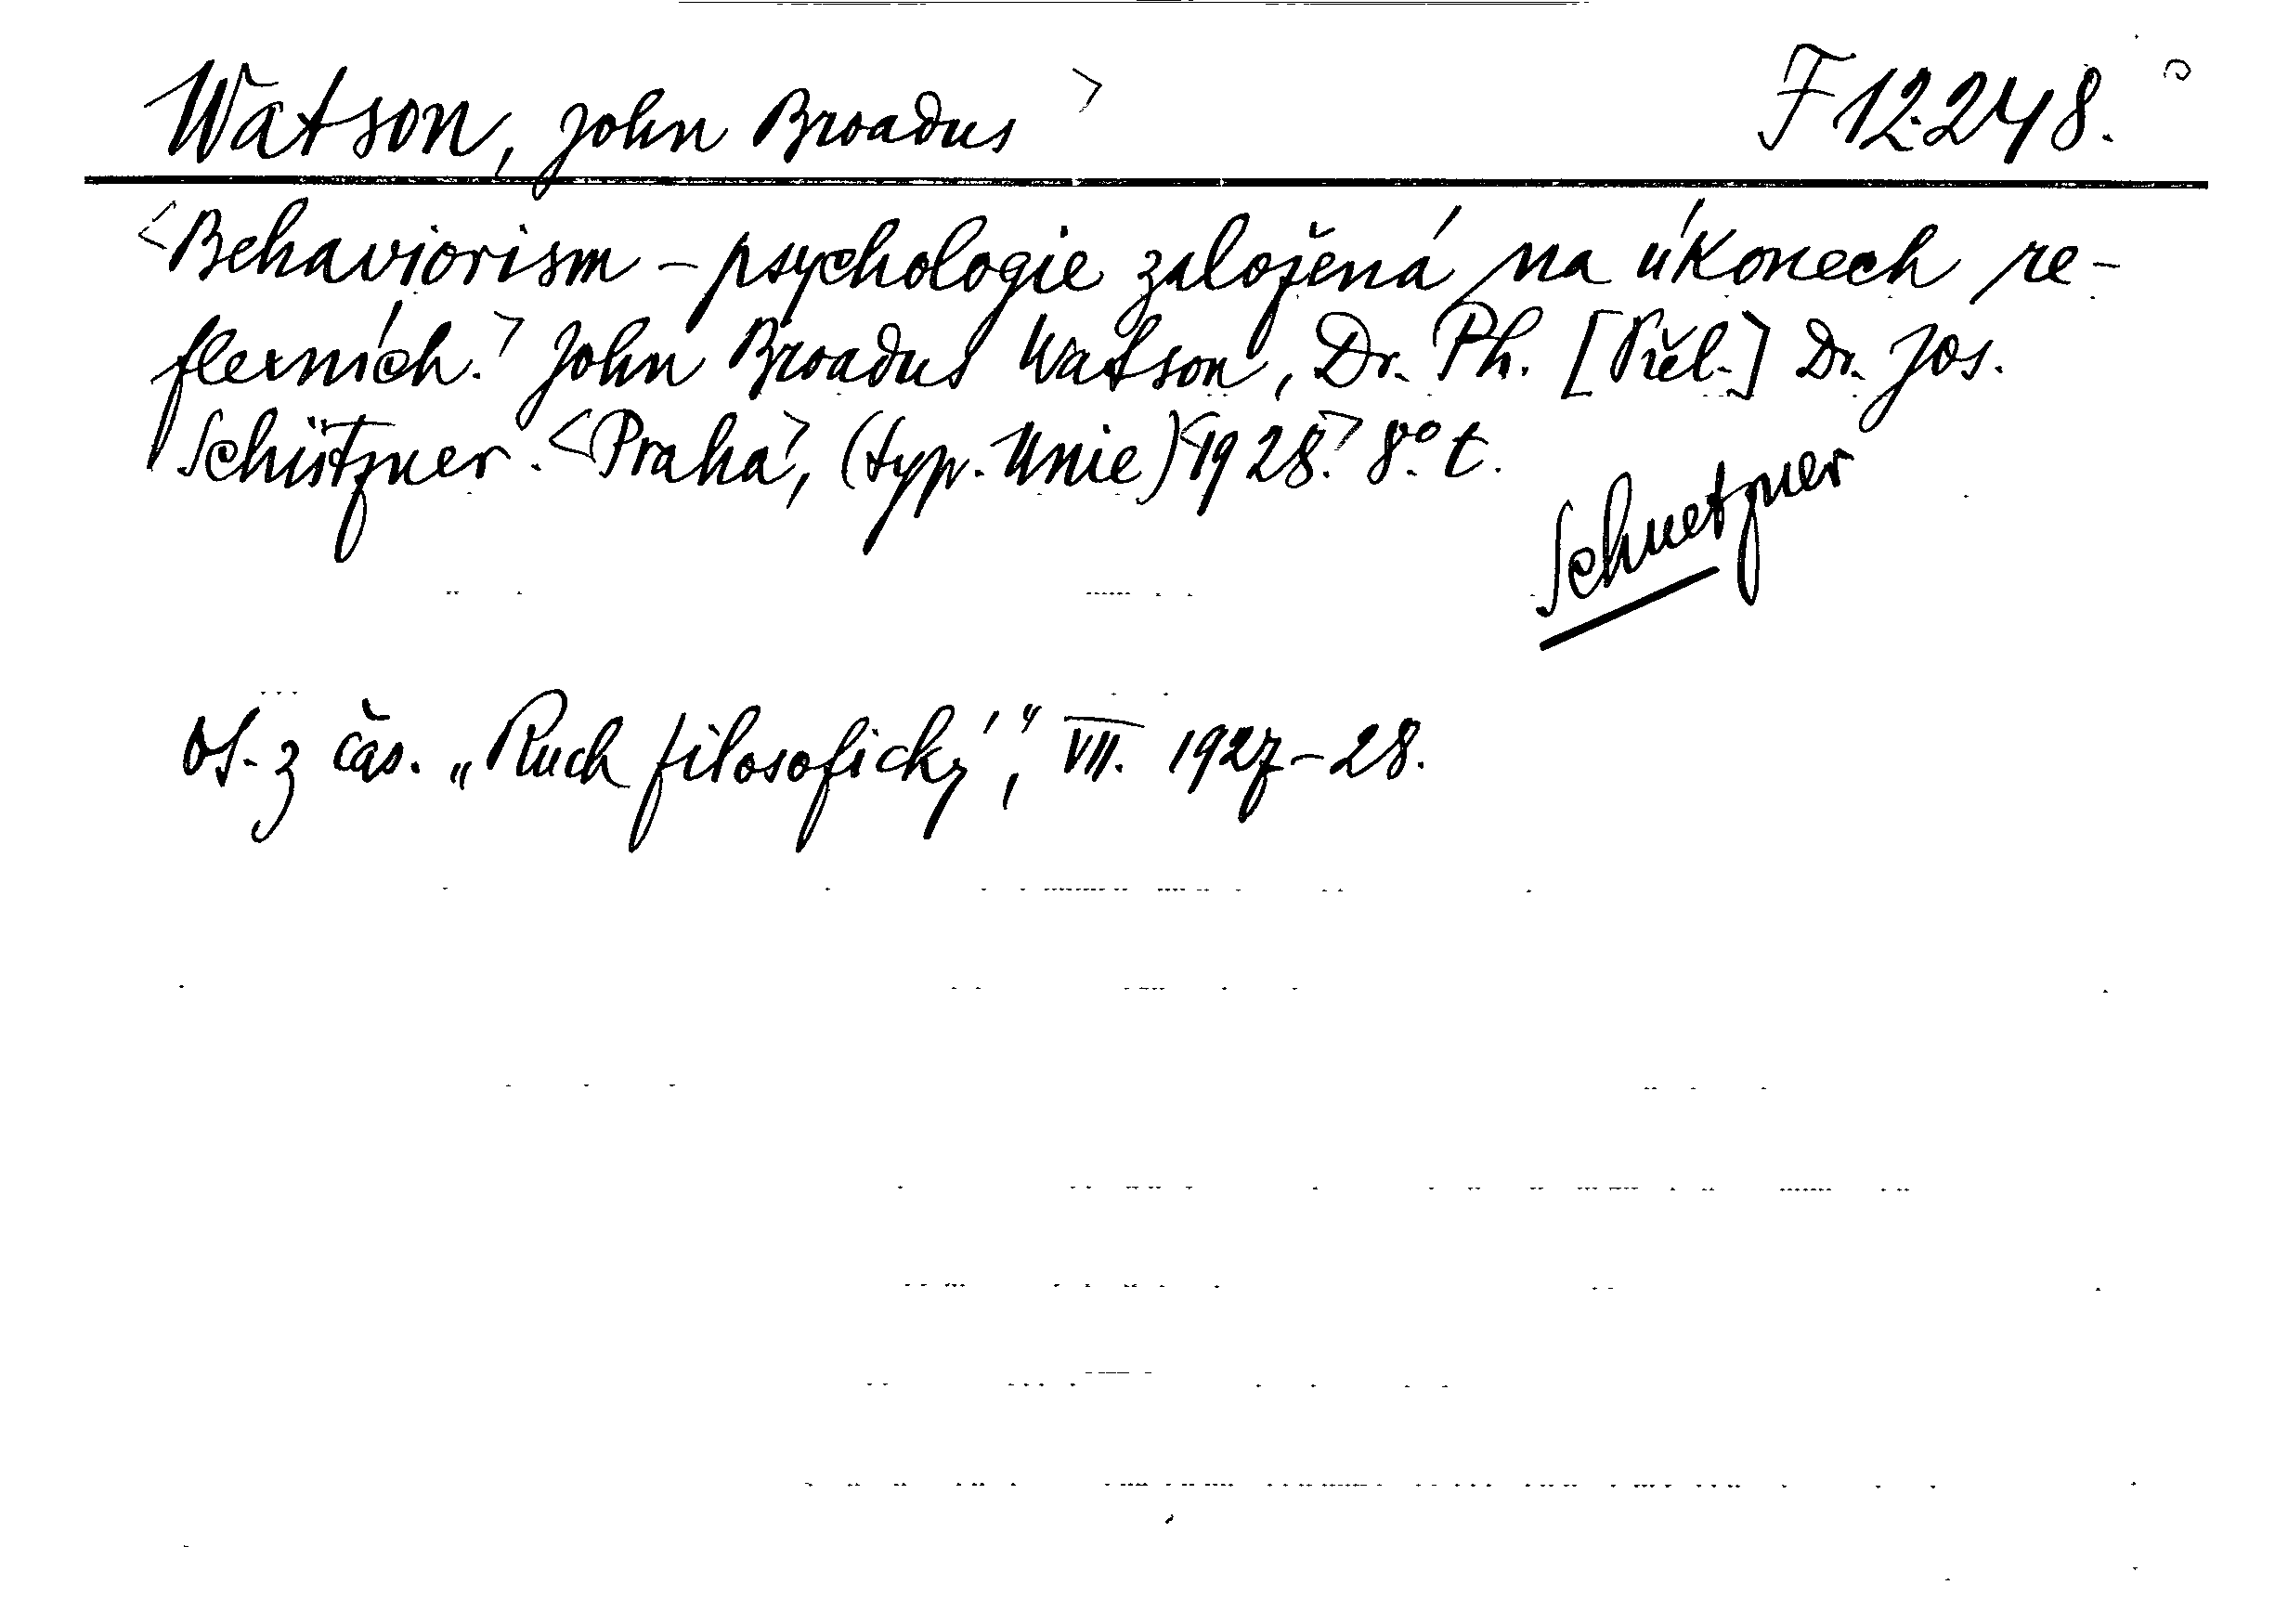 Watson, John Broadus > F 12.248.
<Behaviorism - psychologie založená na úkonech re-
flexních.> John Broadus Watson, Dr. Ph. [Přel.] Dr. Jos.
Schützner. <Praha>, (typ. Unie) <1928.> 8° t.
Schuetzner
Ot. z čas. „Ruch filosofický“, VII. 1927-28.